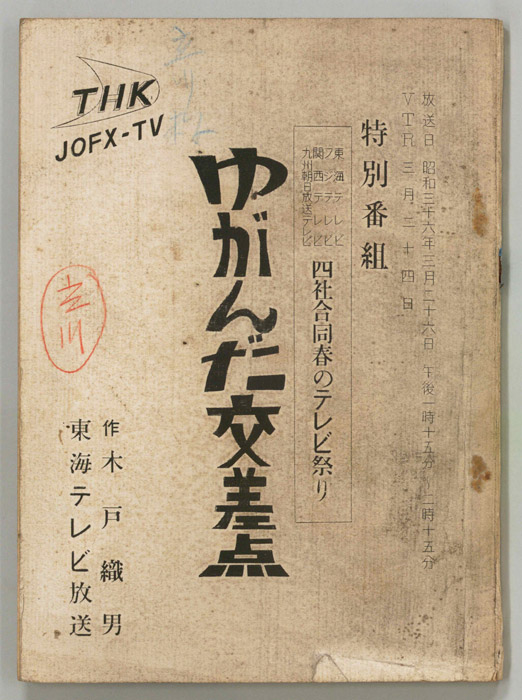 放送日 昭和三十六年三月二十六日 午後一時十五分—二時十五分
VTR 三月二十四日
特別番組
東海テレビ
フジテレビ
関西テレビ
九州朝日放送テレビ
四社合同春のテレビ祭り
ゆがんだ交差点
作 木戸織男
東海テレビ放送
THK
JOFX-TV
立川